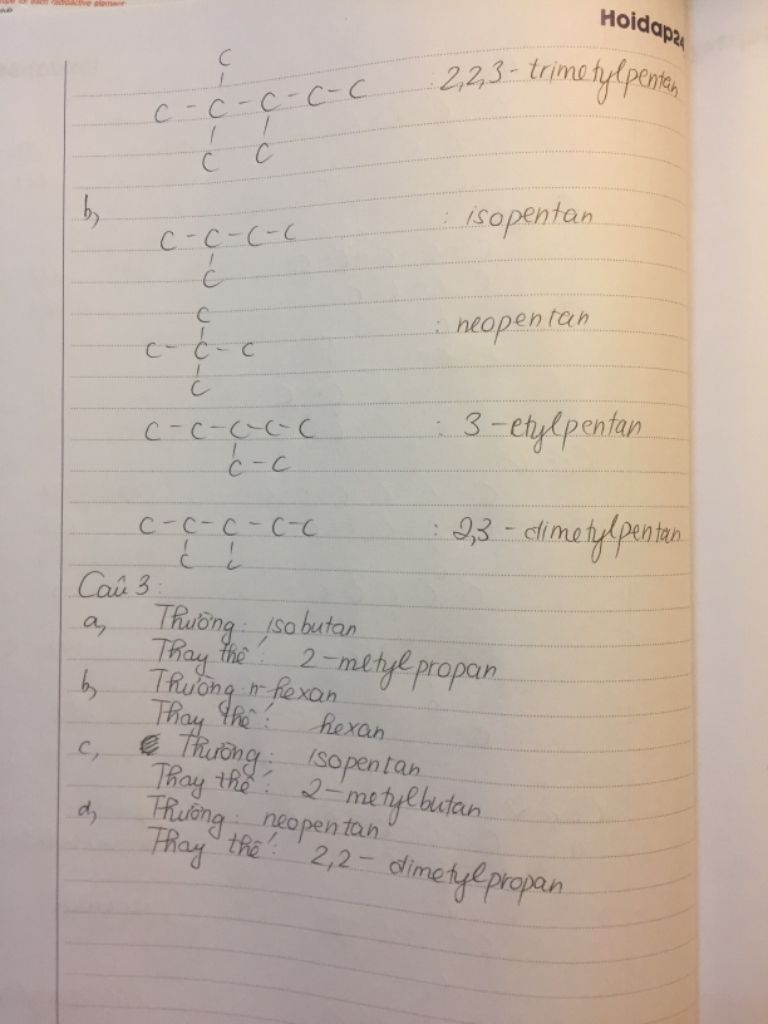 Hoidap24
C
C - C - C - C - C : 2,2,3 - trimetylpentan
C C
b,
C - C - C - C : isopentan
C
C
C - C - C : neopentan
C
C - C - C - C - C : 3 - etylpentan
C - C
C - C - C - C - C : 2,3 - dimetylpentan
C C
Câu 3 :
a, Thường : isobutan
Thay thế : 2 - metylpropan
b, Thường n-hexan
Thay thế : hexan
c, Thường : isopentan
Thay thế : 2 - metylbutan
d, Thường : neopentan
Thay thế : 2,2 - dimetylpropan